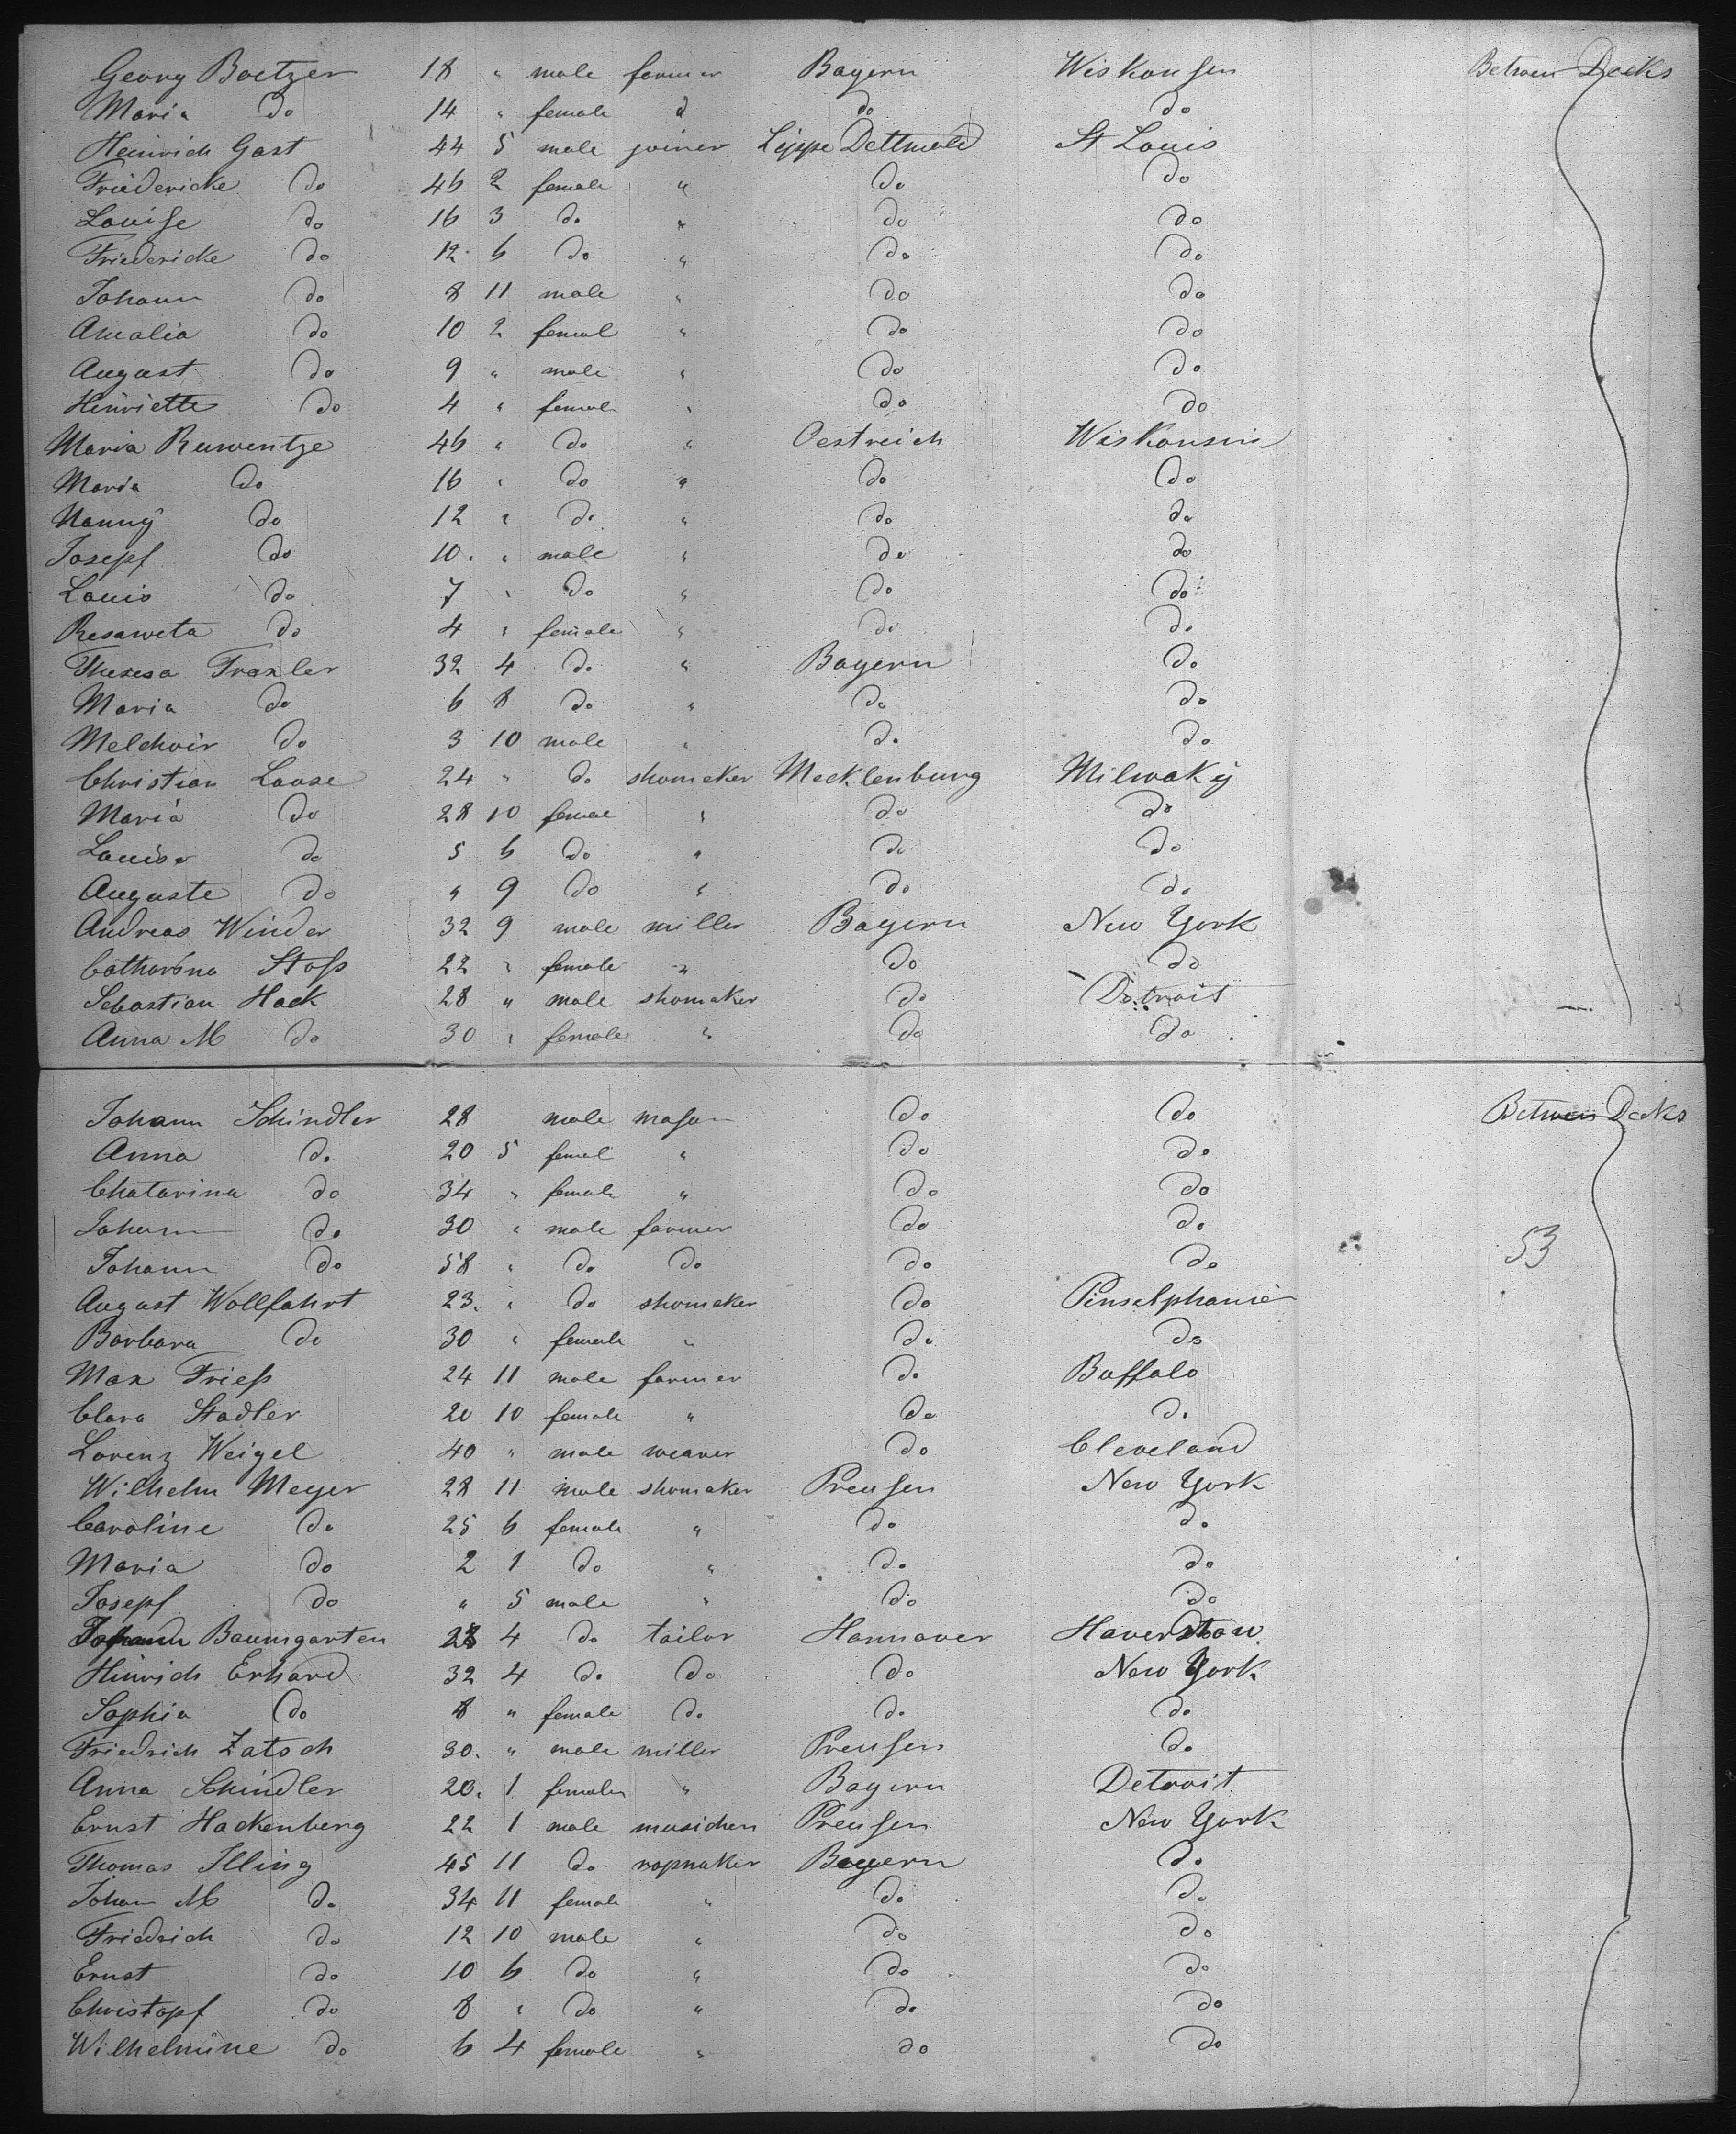 Georg Boetzer 18 " male farmer Bayern Wiskonsen Betwen Decks
Maria do 14 " female d do do
Heinrich Gast 44 5 male joiner Lippe Dettmold St Louis
Friedericke do 46 2 female " do do
Louise do 16 3 do " do do
Friedericke do 12 6 do " do do
Johann do 8 11 male " do do
Amalia do 10 2 femal " do do
August do 9 " male " do do
Henriette do 4 " femal " do do
Maria Ruwentze 46 " do " Oestreich Wiskonsin
Maria do 16 " do " do do
Nanny do 12 " do " do do
Josepf do 10 " male " do do
Louis do 7 " do " do do
Resaweta do 4 " female " do do
Theresa Traxler 32 4 do " Bayern do
Maria do 6 8 do " do do
Melchoir do 3 10 male " do do
Christian Laase 24 " do shomeker Mecklenburg Milwaky
Maria do 28 10 femae " do do
Louise do 5 6 do " do do
Auguste do " 9 do " do do
Andreas Winder 32 9 male miller Bayern New York
Catharina Stoss 22 " female " do do
Sebastian Hack 28 " male shomaker do Detroit
Anna M do 30 " female " do do
Johann Schindler 28 male mason do do Betwen Decks
Anna do 20 5 femal " do do
Chatarina do 34 " female " do do
Johann do 30 " male farmer do do
53
Johann do 58 " do do do do
August Wollfahrt 23 " do shomeker do Pinselphanie
Barbara do 30 " female " do do
Max Friess 24 11 male farmer do Buffalo
Clara Stadler 20 10 female " do do
Lorenz Weigel 40 " male weaver do Cleveland
Wilhelm Meyer 28 11 male shomaker Preusen New York
Caroline do 25 6 female " do do
Maria do 2 1 do " do do
Josepf do " 5 male " do do
Johann Baumgarten 28 4 do tailor Hannover Haverstow
Hinrich Erhard 32 4 do do do New York
Sophia do 8 " female do do do
Friedrich Zatsch 30 " male miller Preusen do
Anna Schindler 20 1 female " Bayern Detroit
Ernst Hackenberg 22 1 male musichen Preusen New York
Thomas Illing 45 11 do ropmaker Bayern do
Johan M do 34 11 female " do do
Friedrich do 12 10 male " do do
Ernst do 10 6 do " do do
Christopf do 8 " do " do do
Wilhelmine do 6 4 female " do do